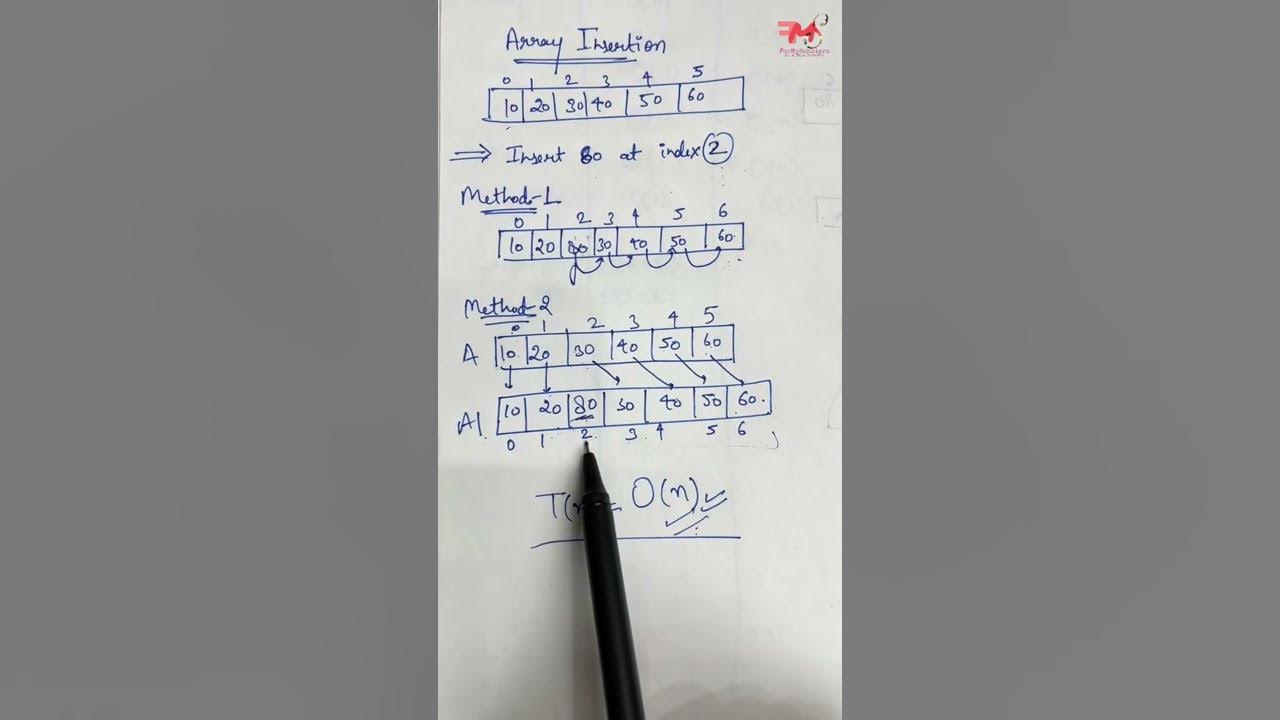 Array Insertion
0 1 2 3 4 5
10 20 30 40 50 60
⇒ Insert 80 at index 2
Method-1
0 1 2 3 4 5 6
10 20 80 30 40 50 60
Method-2
0 1 2 3 4 5
A 10 20 30 40 50 60
A1. 10 20 80 30 40 50 60.
0 1 2 3 4 5 6
O(n)